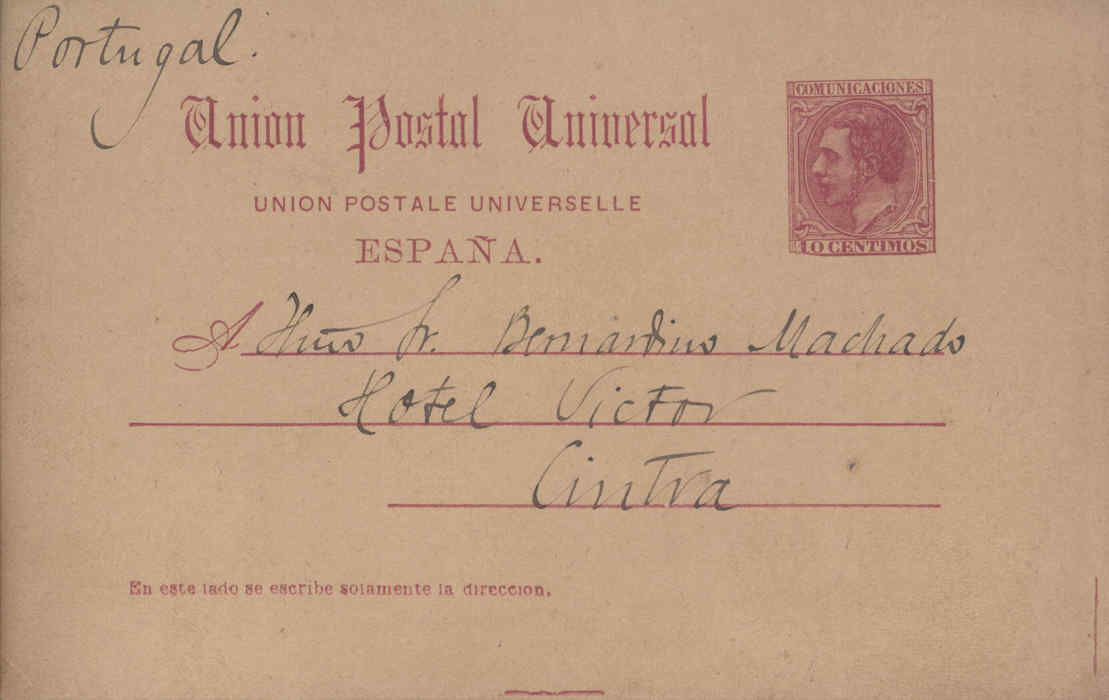 Portugal.
Union Postal Universal
COMUNICACIONES
UNION POSTALE UNIVERSELLE
10 CENTIMOS
ESPAÑA.
A Sr. Bernardino Machado
Hotel Victor
Cintra
En este lado se escribe solamente la direccion.